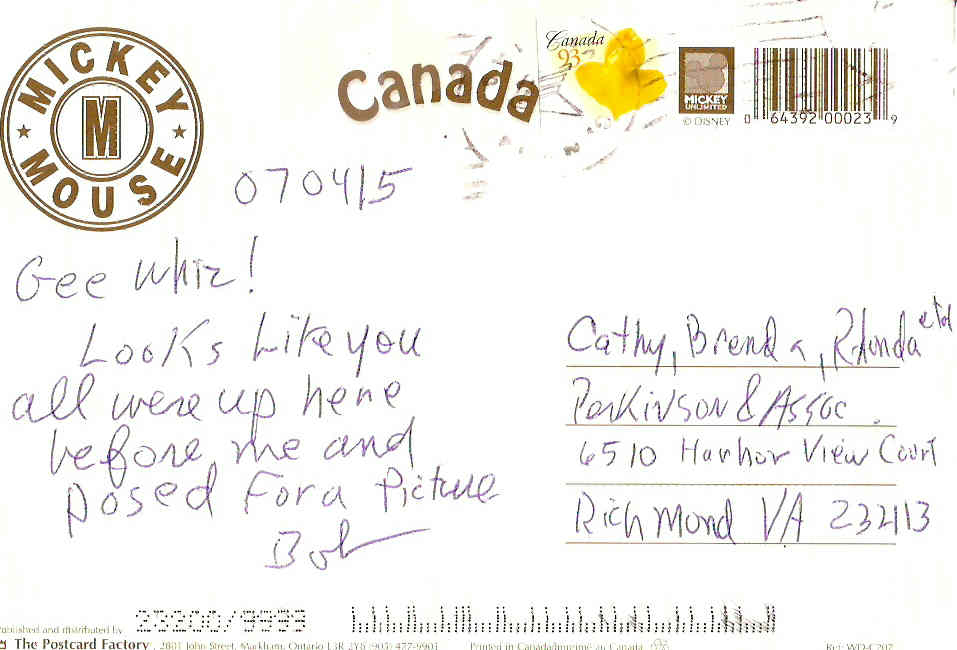 MICKEY
M
MOUSE
Canada
Canada
93
MICKEY
UNLIMITED
© DISNEY
0 64392 00023 9
070415
Gee Whiz!
Looks Like you
all were up here
before me and
posed For a Picture
Bob
Cathy, Brenda, Rhonda etal
Parkinson & Assoc.
6510 Harbor View Court
Richmond VA
23200/9999
Published and distributed by
The Postcard Factory, 2801 John Street, Markham, Ontario L3R 2Y8 (905) 477-9901
Printed in Canada/Imprimé au Canada
Ref: WD-C707